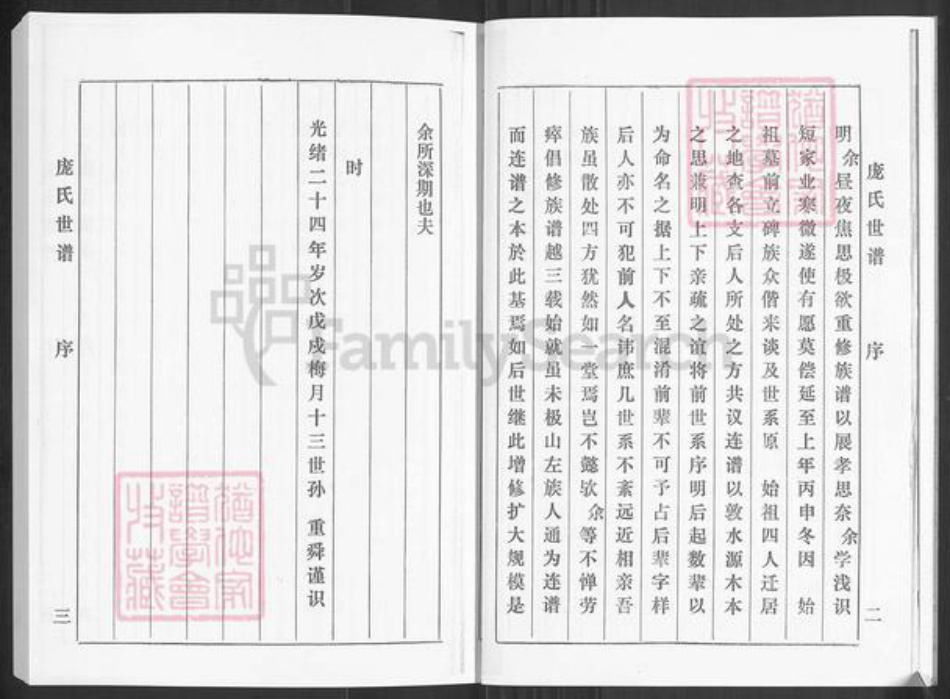 庞氏世谱 序 二
明余昼夜焦思极欲重修族谱以展孝思奈余学浅识
短家业寒微遂使有愿莫偿延至上年丙申冬因 始
祖墓前立碑族众偕来谈及世系原 始祖四人迁居
之地查各支后人所处之方共议连谱以敦水源木本
之思兼明上下亲疏之谊将前世系序明后起数辈以
为命名之据上下不至混淆前辈不可予占后辈字样
后人亦不可犯前人名讳庶几世系不紊远近相亲吾
族虽散处四方犹然如一堂焉岂不懿欤余等不惮劳
瘁倡修族谱越三载始就虽未极山左族人通为连谱
而连谱之本於此基焉如后世继此增修扩大规模是
余所深期也夫
时
光绪二十四年岁次戊戌梅月十三世孙 重舜谨识
庞氏世谱 序 三
FamilySearch